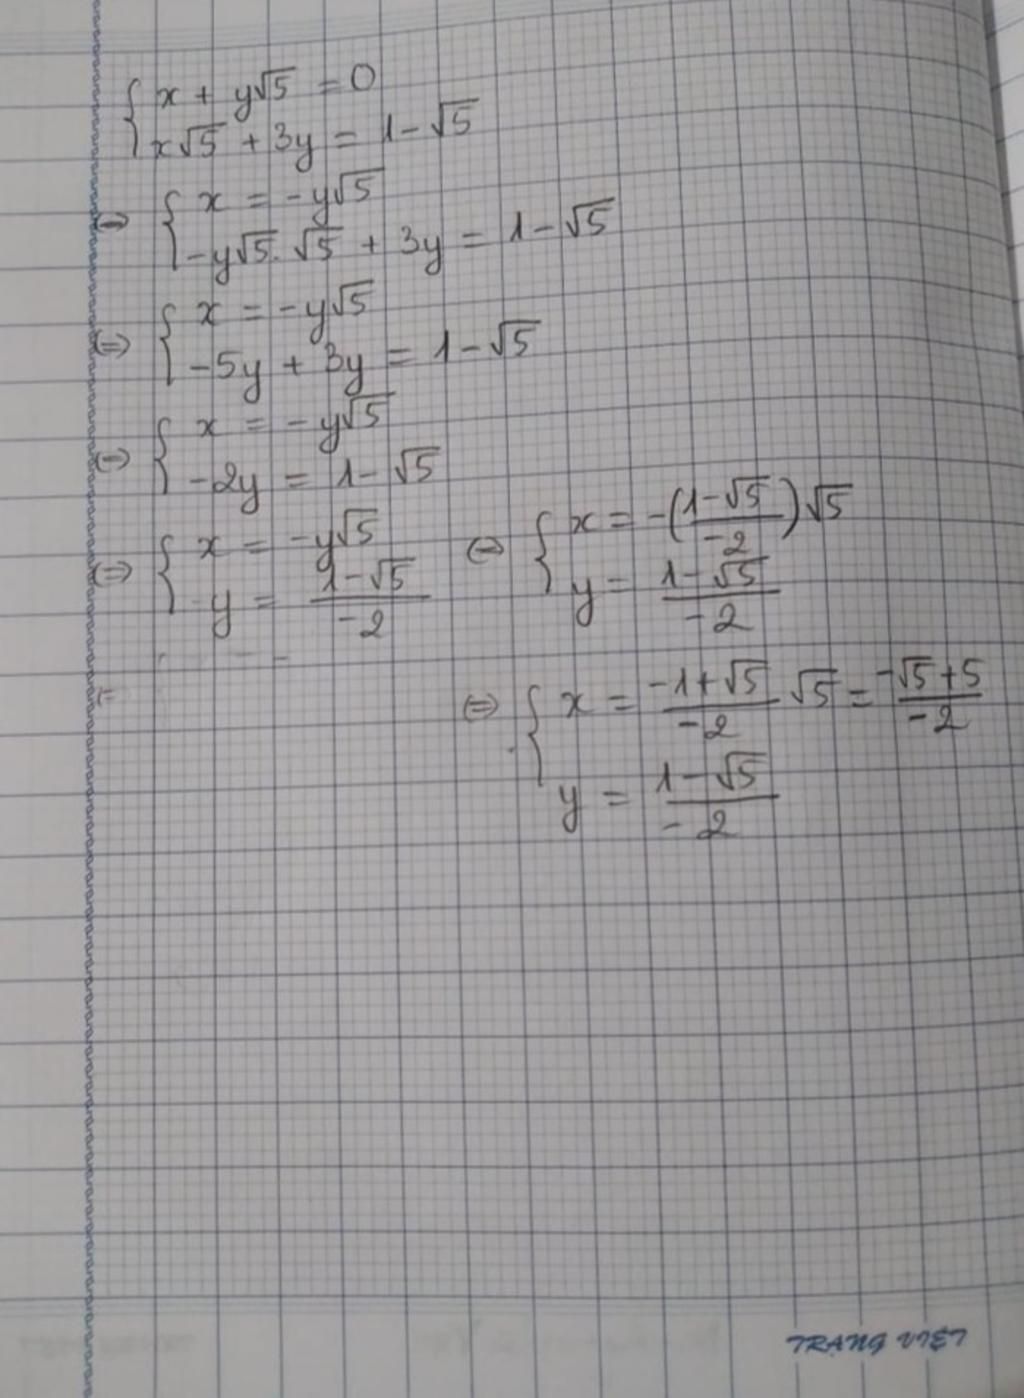 { x + y√5 = 0
x√5 + 3y = 1 - √5
⇔ { x = -y√5
-y√5 . √5 + 3y = 1 - √5
⇔ { x = -y√5
-5y + 3y = 1 - √5
⇔ { x = -y√5
-2y = 1 - √5
⇔ { x = -y√5
y = (1 - √5)/-2
⇔ { x = -((1 - √5)/-2)√5
y = (1 - √5)/-2
⇔ { x = (-1 + √5)/-2 √5 = (-√5 + 5)/-2
y = (1 - √5)/-2
TRANG VIET